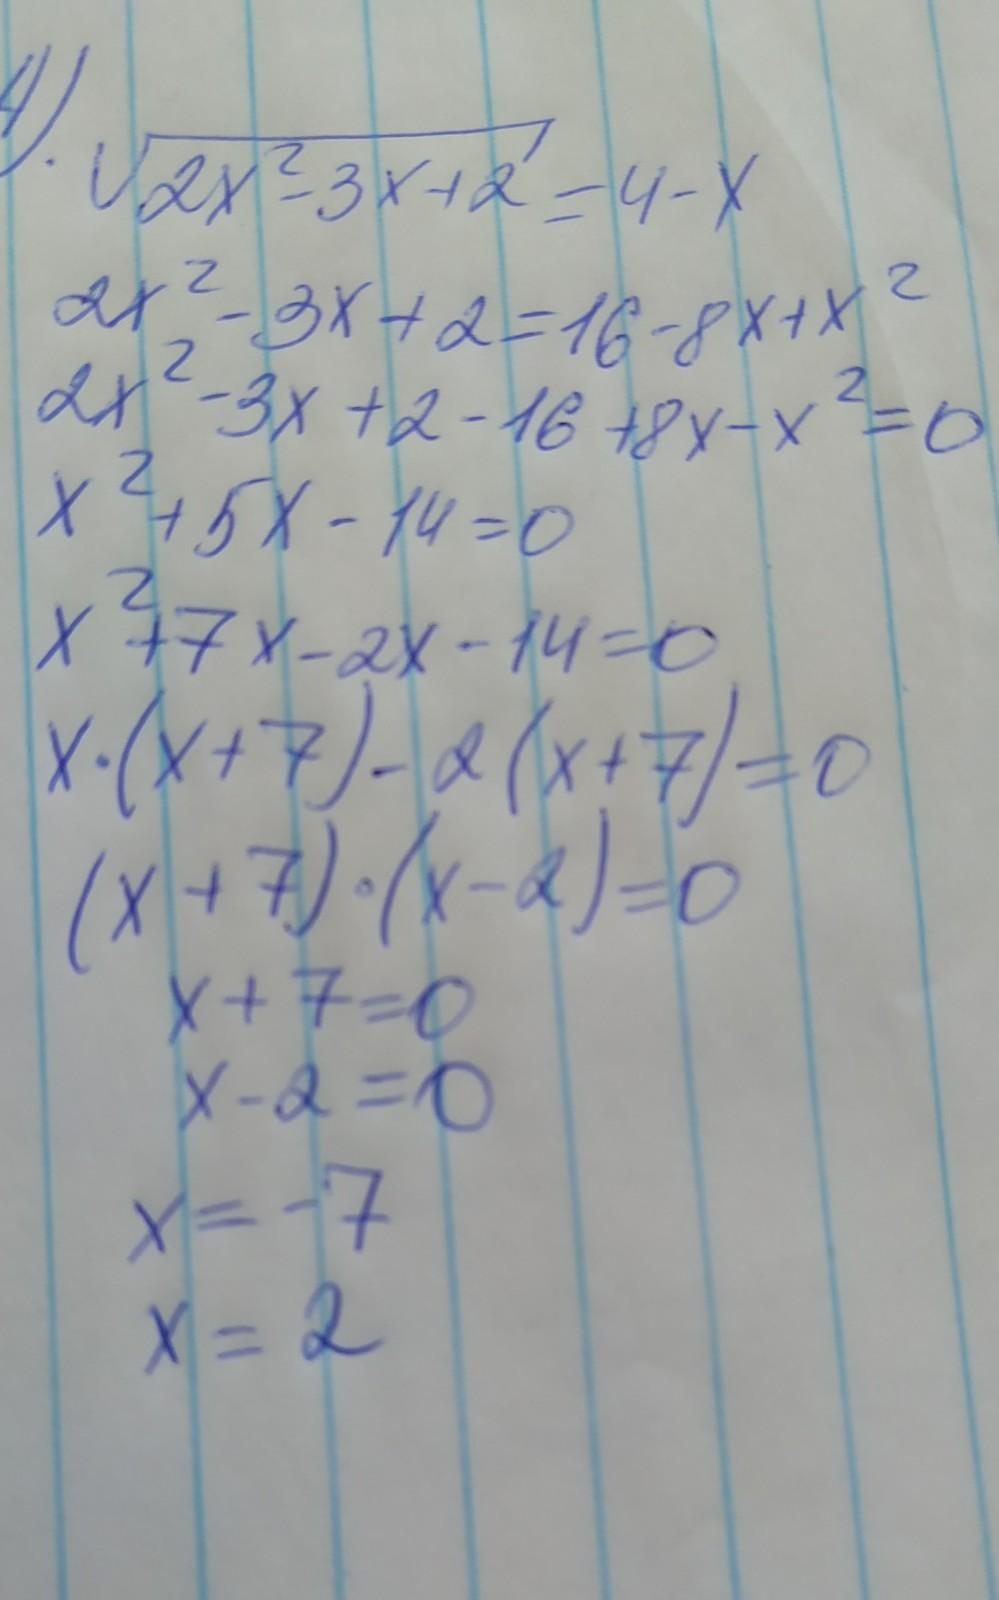 4).
√(2x²-3x+2) = 4-x
2x²-3x+2=16-8x+x²
2x²-3x+2-16+8x-x²=0
x²+5x-14=0
x²+7x-2x-14=0
x·(x+7)-2(x+7)=0
(x+7)·(x-2)=0
x+7=0
x-2=0
x=-7
x=2